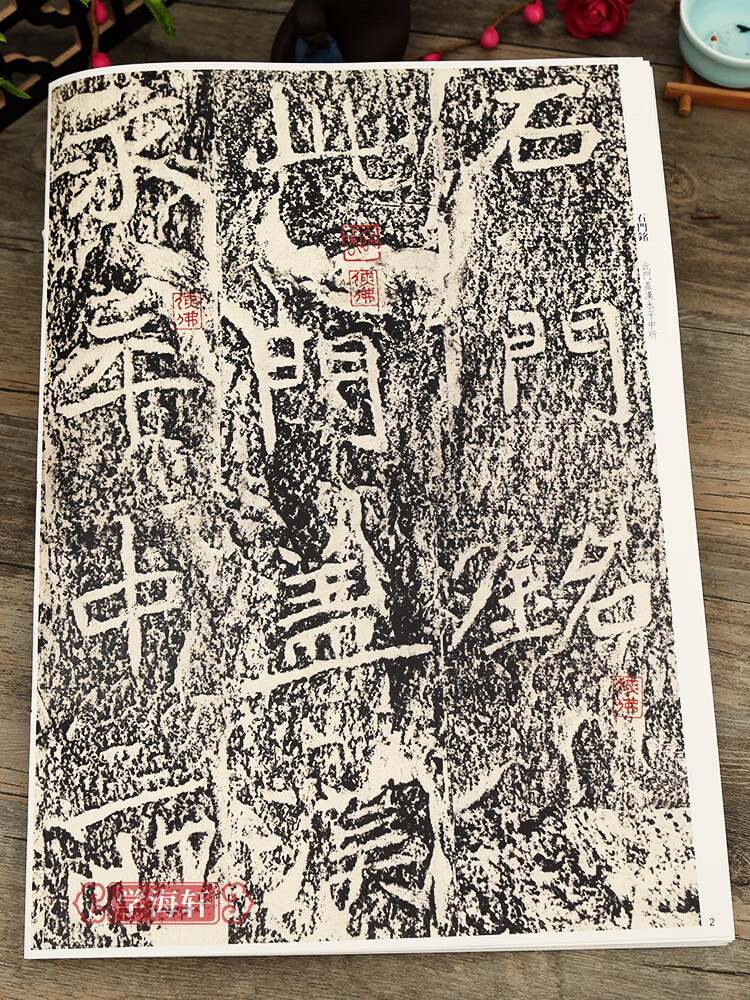 石門銘
此門蓋漢
永平中所
石門銘
此門蓋漢永平中所
2
学海轩